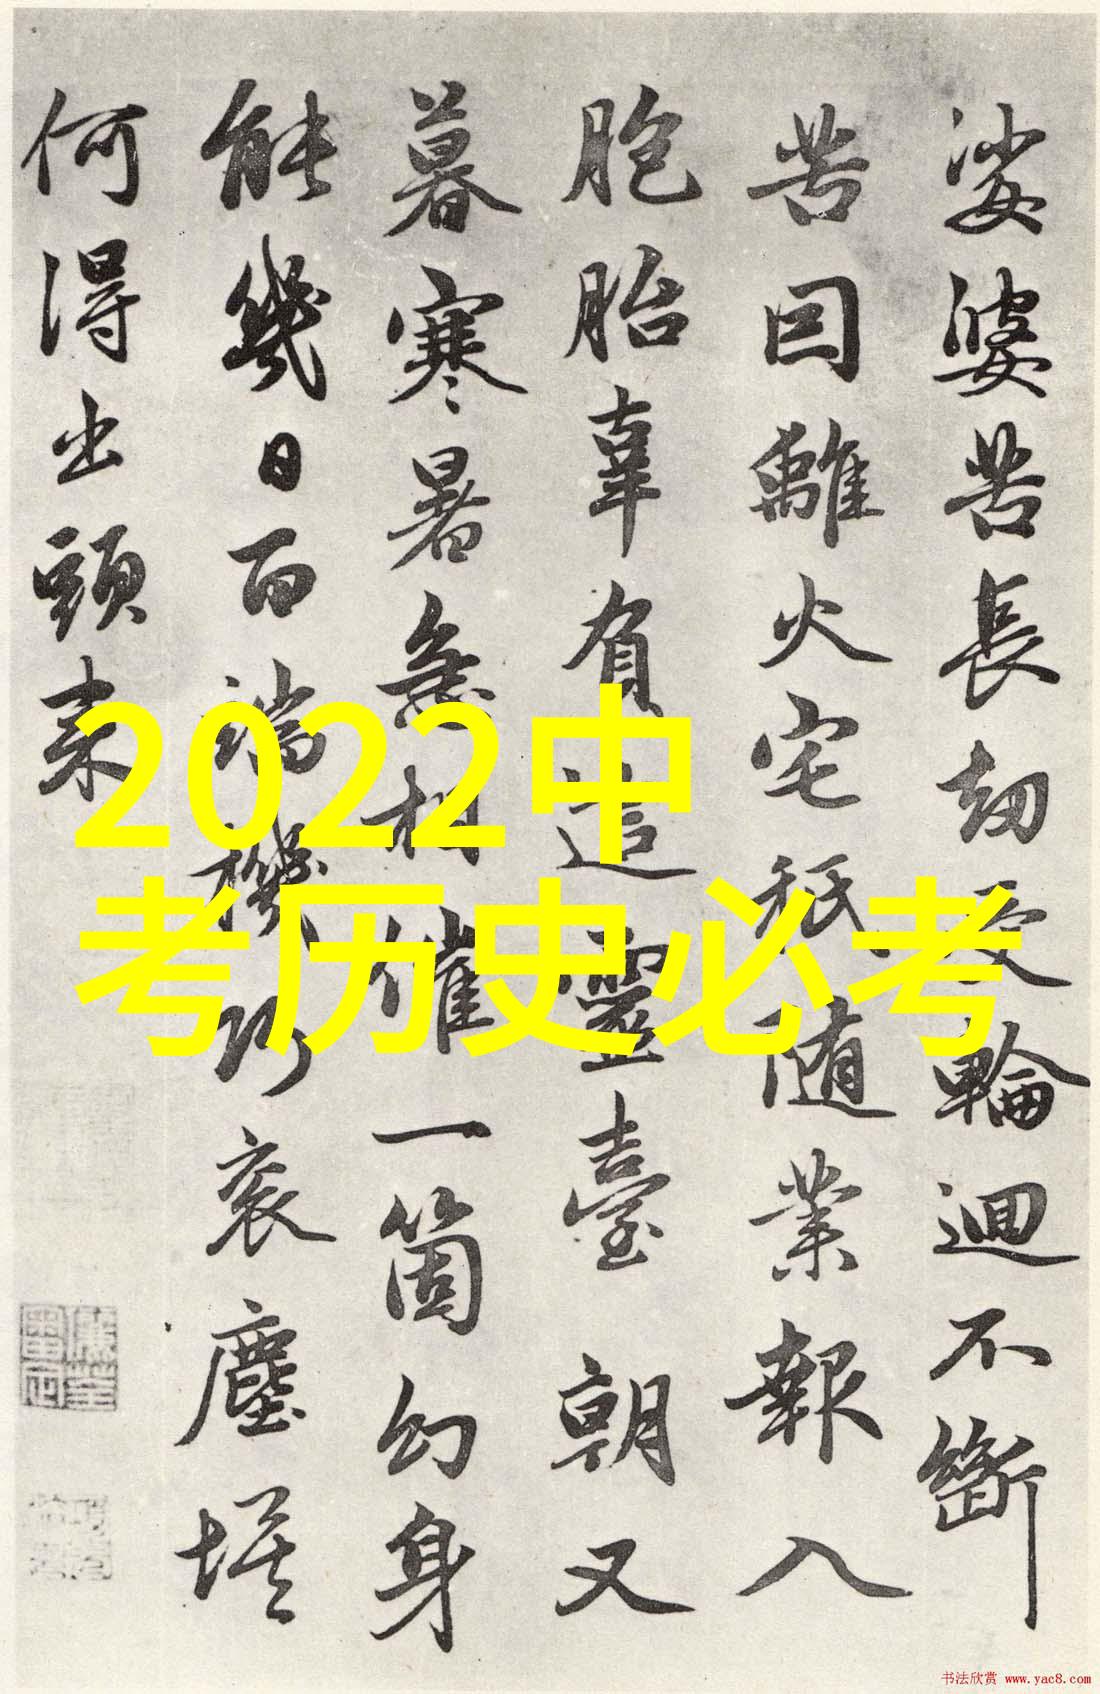 娑婆苦長劫受輪迴不斷
苦因離火宅秖随業報入
胞胎辜負這靈臺朝又
暮寒暑急相催一箇幻身
能幾日百端機巧衮塵埃
何得出頭来
2022中
考历史必考
书法欣赏 www.yac8.com